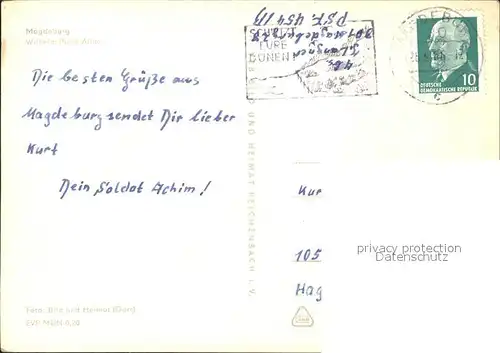 Magdeburg
Wilhelm Pieck Allee
Die besten Grüße aus
Magdeburg sendet Dir lieber
Kurt
Dein Soldat Achim!
Foto: Bild und Heimat
EVP MDN 0,20
UND HEIMAT REICHENBACH I. V.
SCHÜTZT
EURE
DÜNEN!
PSF
DEUTSCHE
DEMOKRATISCHE REPUBLIK
10
Kur
105
Hag
privacy protection
Datenschutz